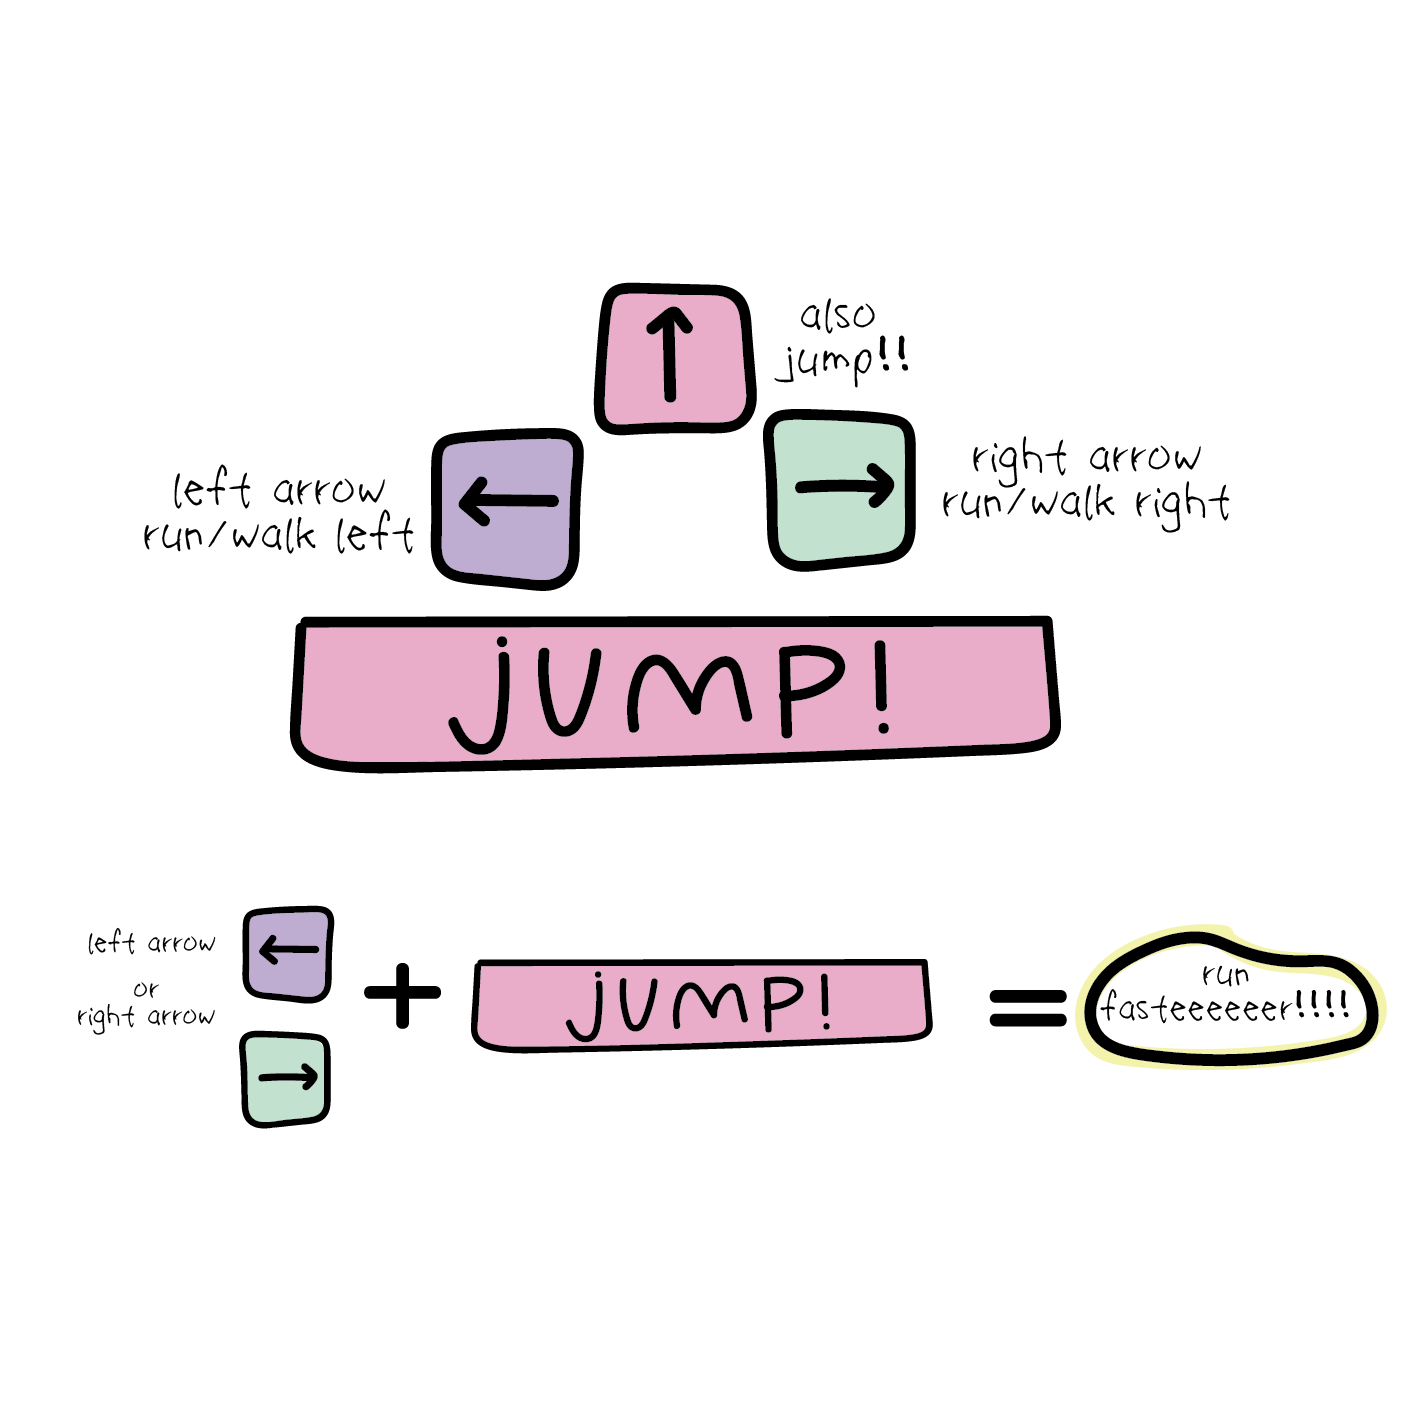 also
jump!!
left arrow
run/walk left
right arrow
run/walk right
jump!
left arrow
or
right arrow
jump!
run
fasteeeeeer!!!!